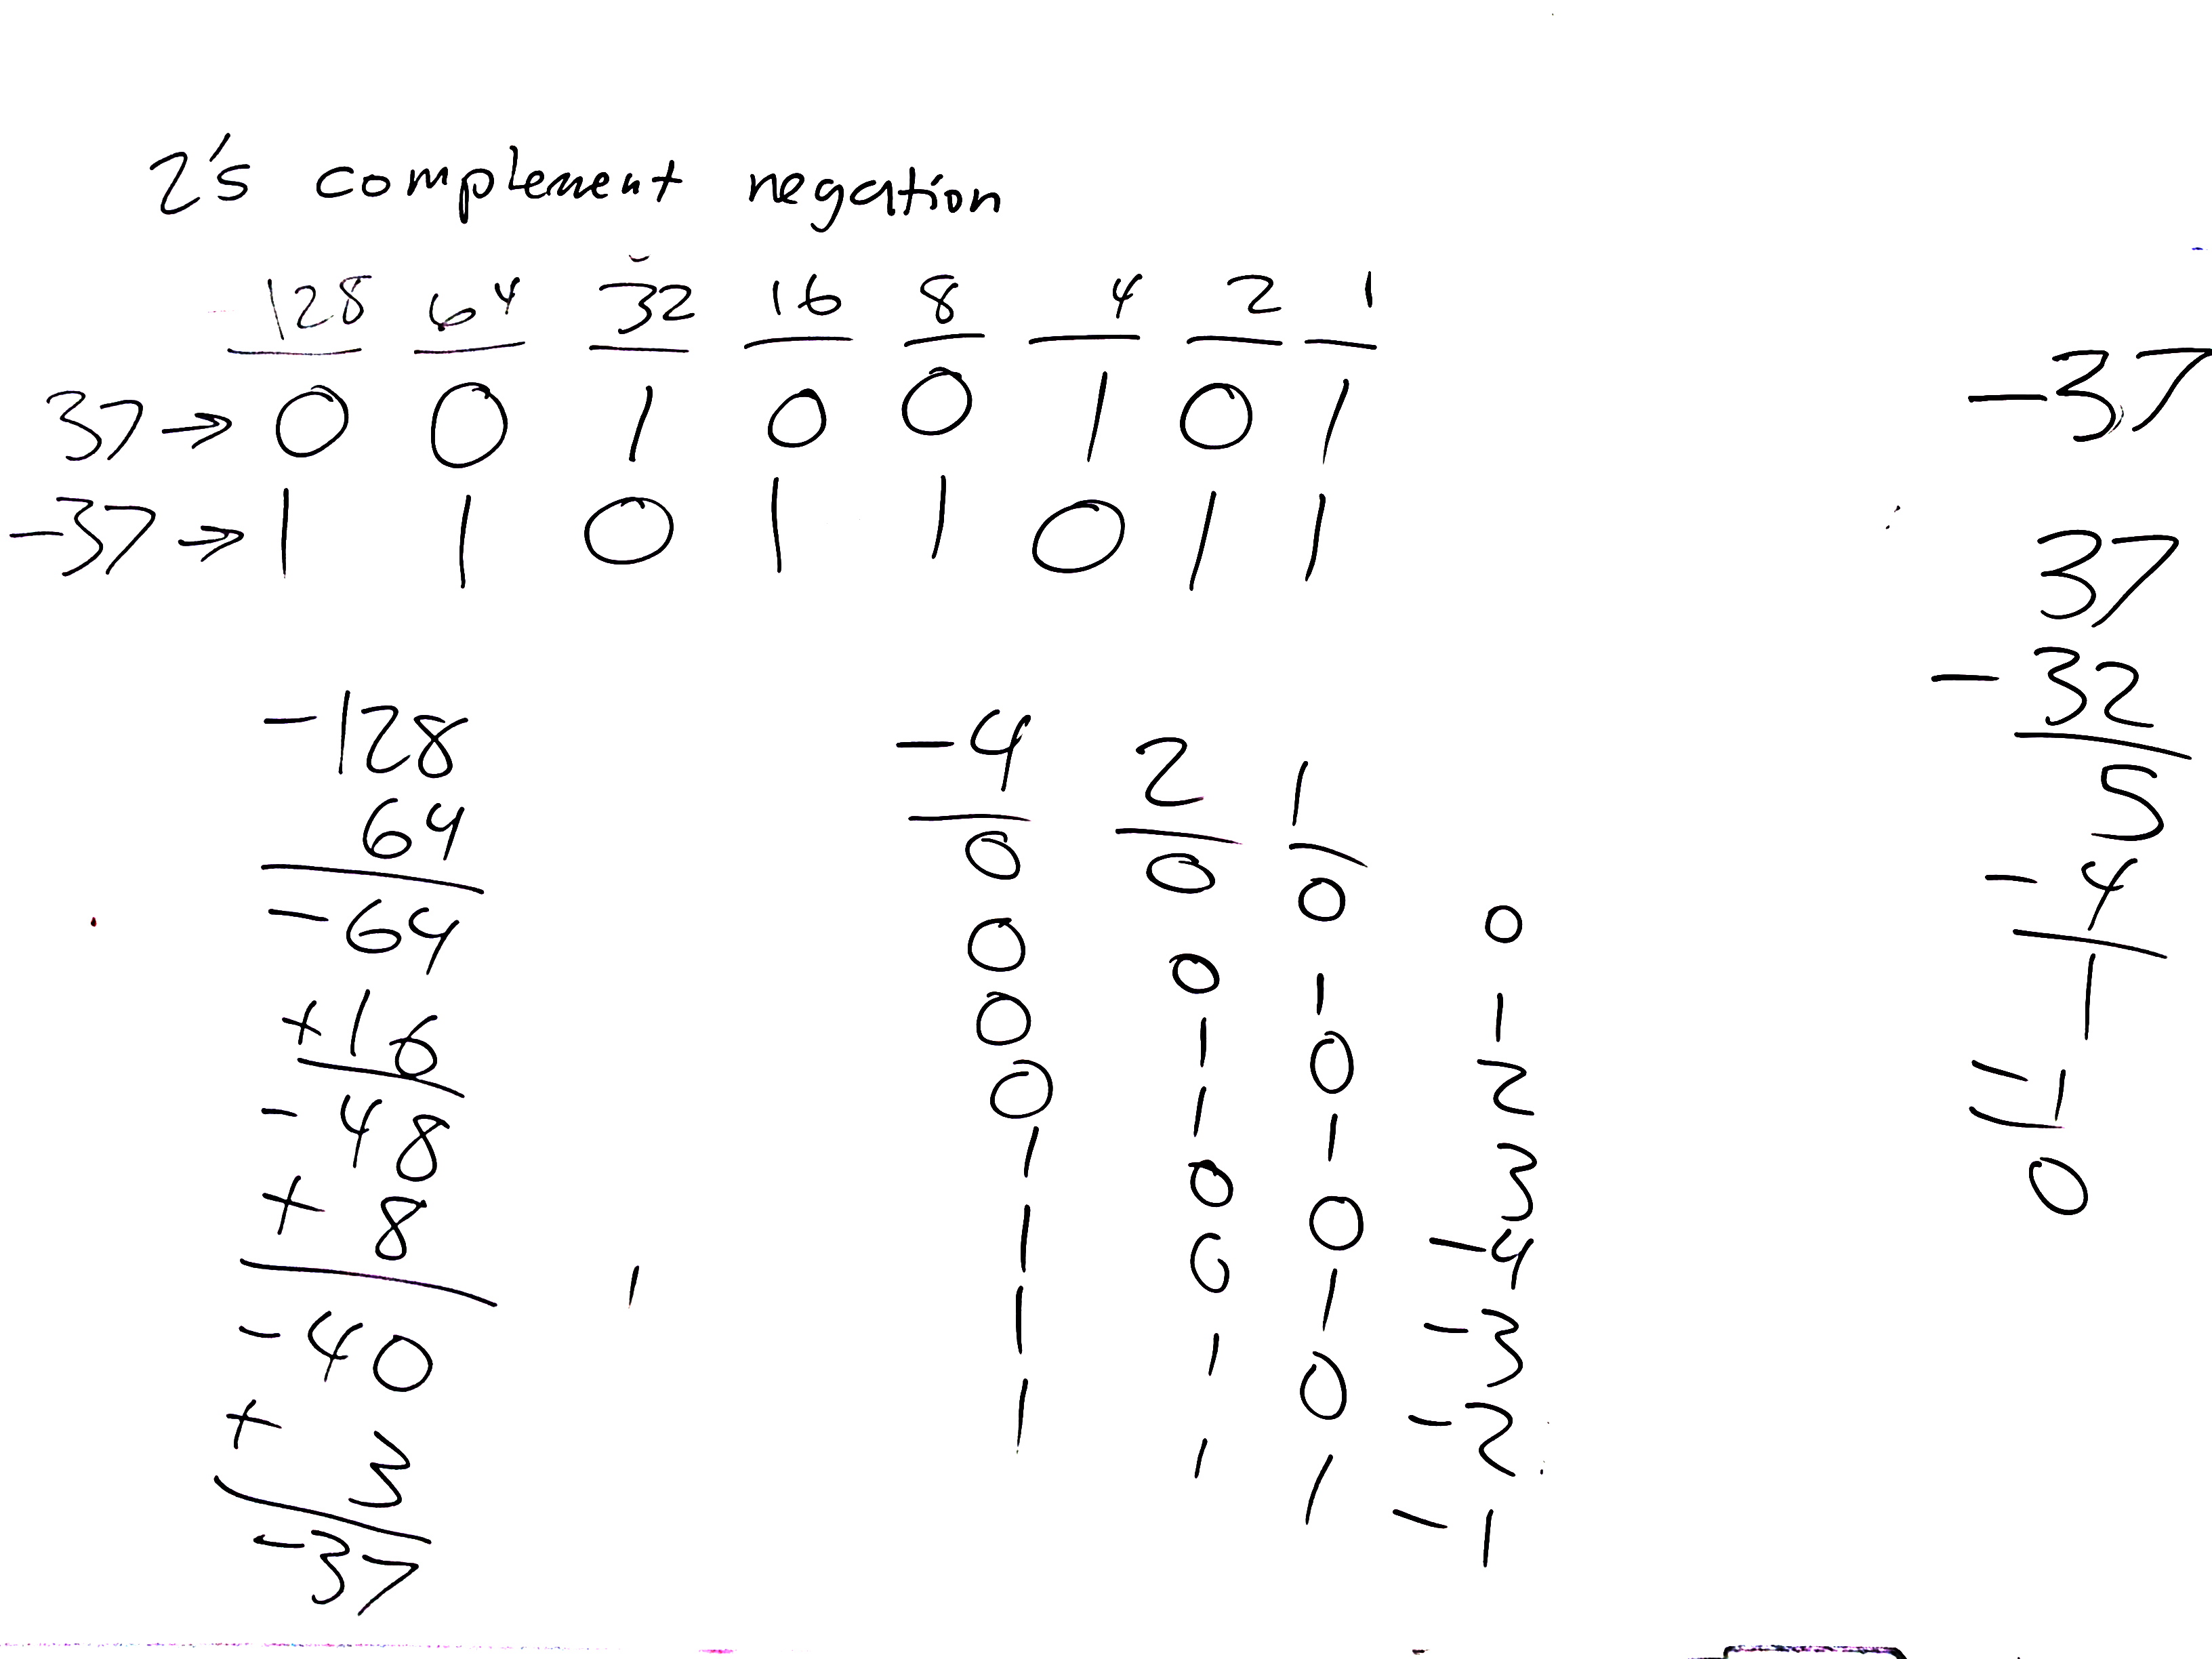 2's complement negation
128 64 32 16 8 4 2 1
37 ⇒ 0 0 1 0 0 1 0 1
-37 ⇒ 1 1 0 1 1 0 1 1
-128
64
-64
+16
-48
+ 8
-40
+ 3
-37
-4 2 1
0 0 0 0
0 0 1 1
0 1 0 2
0 1 1 3
1 0 0 -4
1 0 1 -3
1 1 0 -2
1 1 1 -1
-37
37
- 32
5
- 4
1
- 1
0